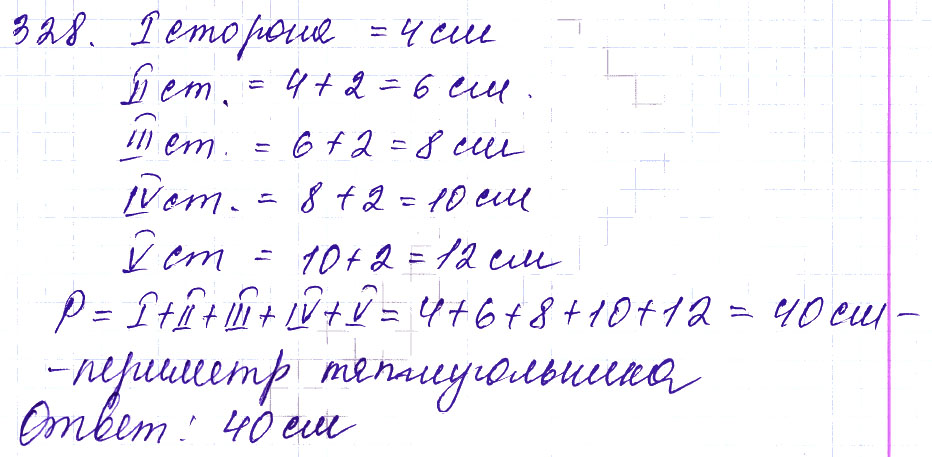 328. I сторона = 4 см
II ст. = 4 + 2 = 6 см.
III ст. = 6 + 2 = 8 см
IV ст. = 8 + 2 = 10 см
V ст = 10 + 2 = 12 см
P = I + II + III + IV + V = 4 + 6 + 8 + 10 + 12 = 40 см –
– периметр пятиугольника
Ответ: 40 см